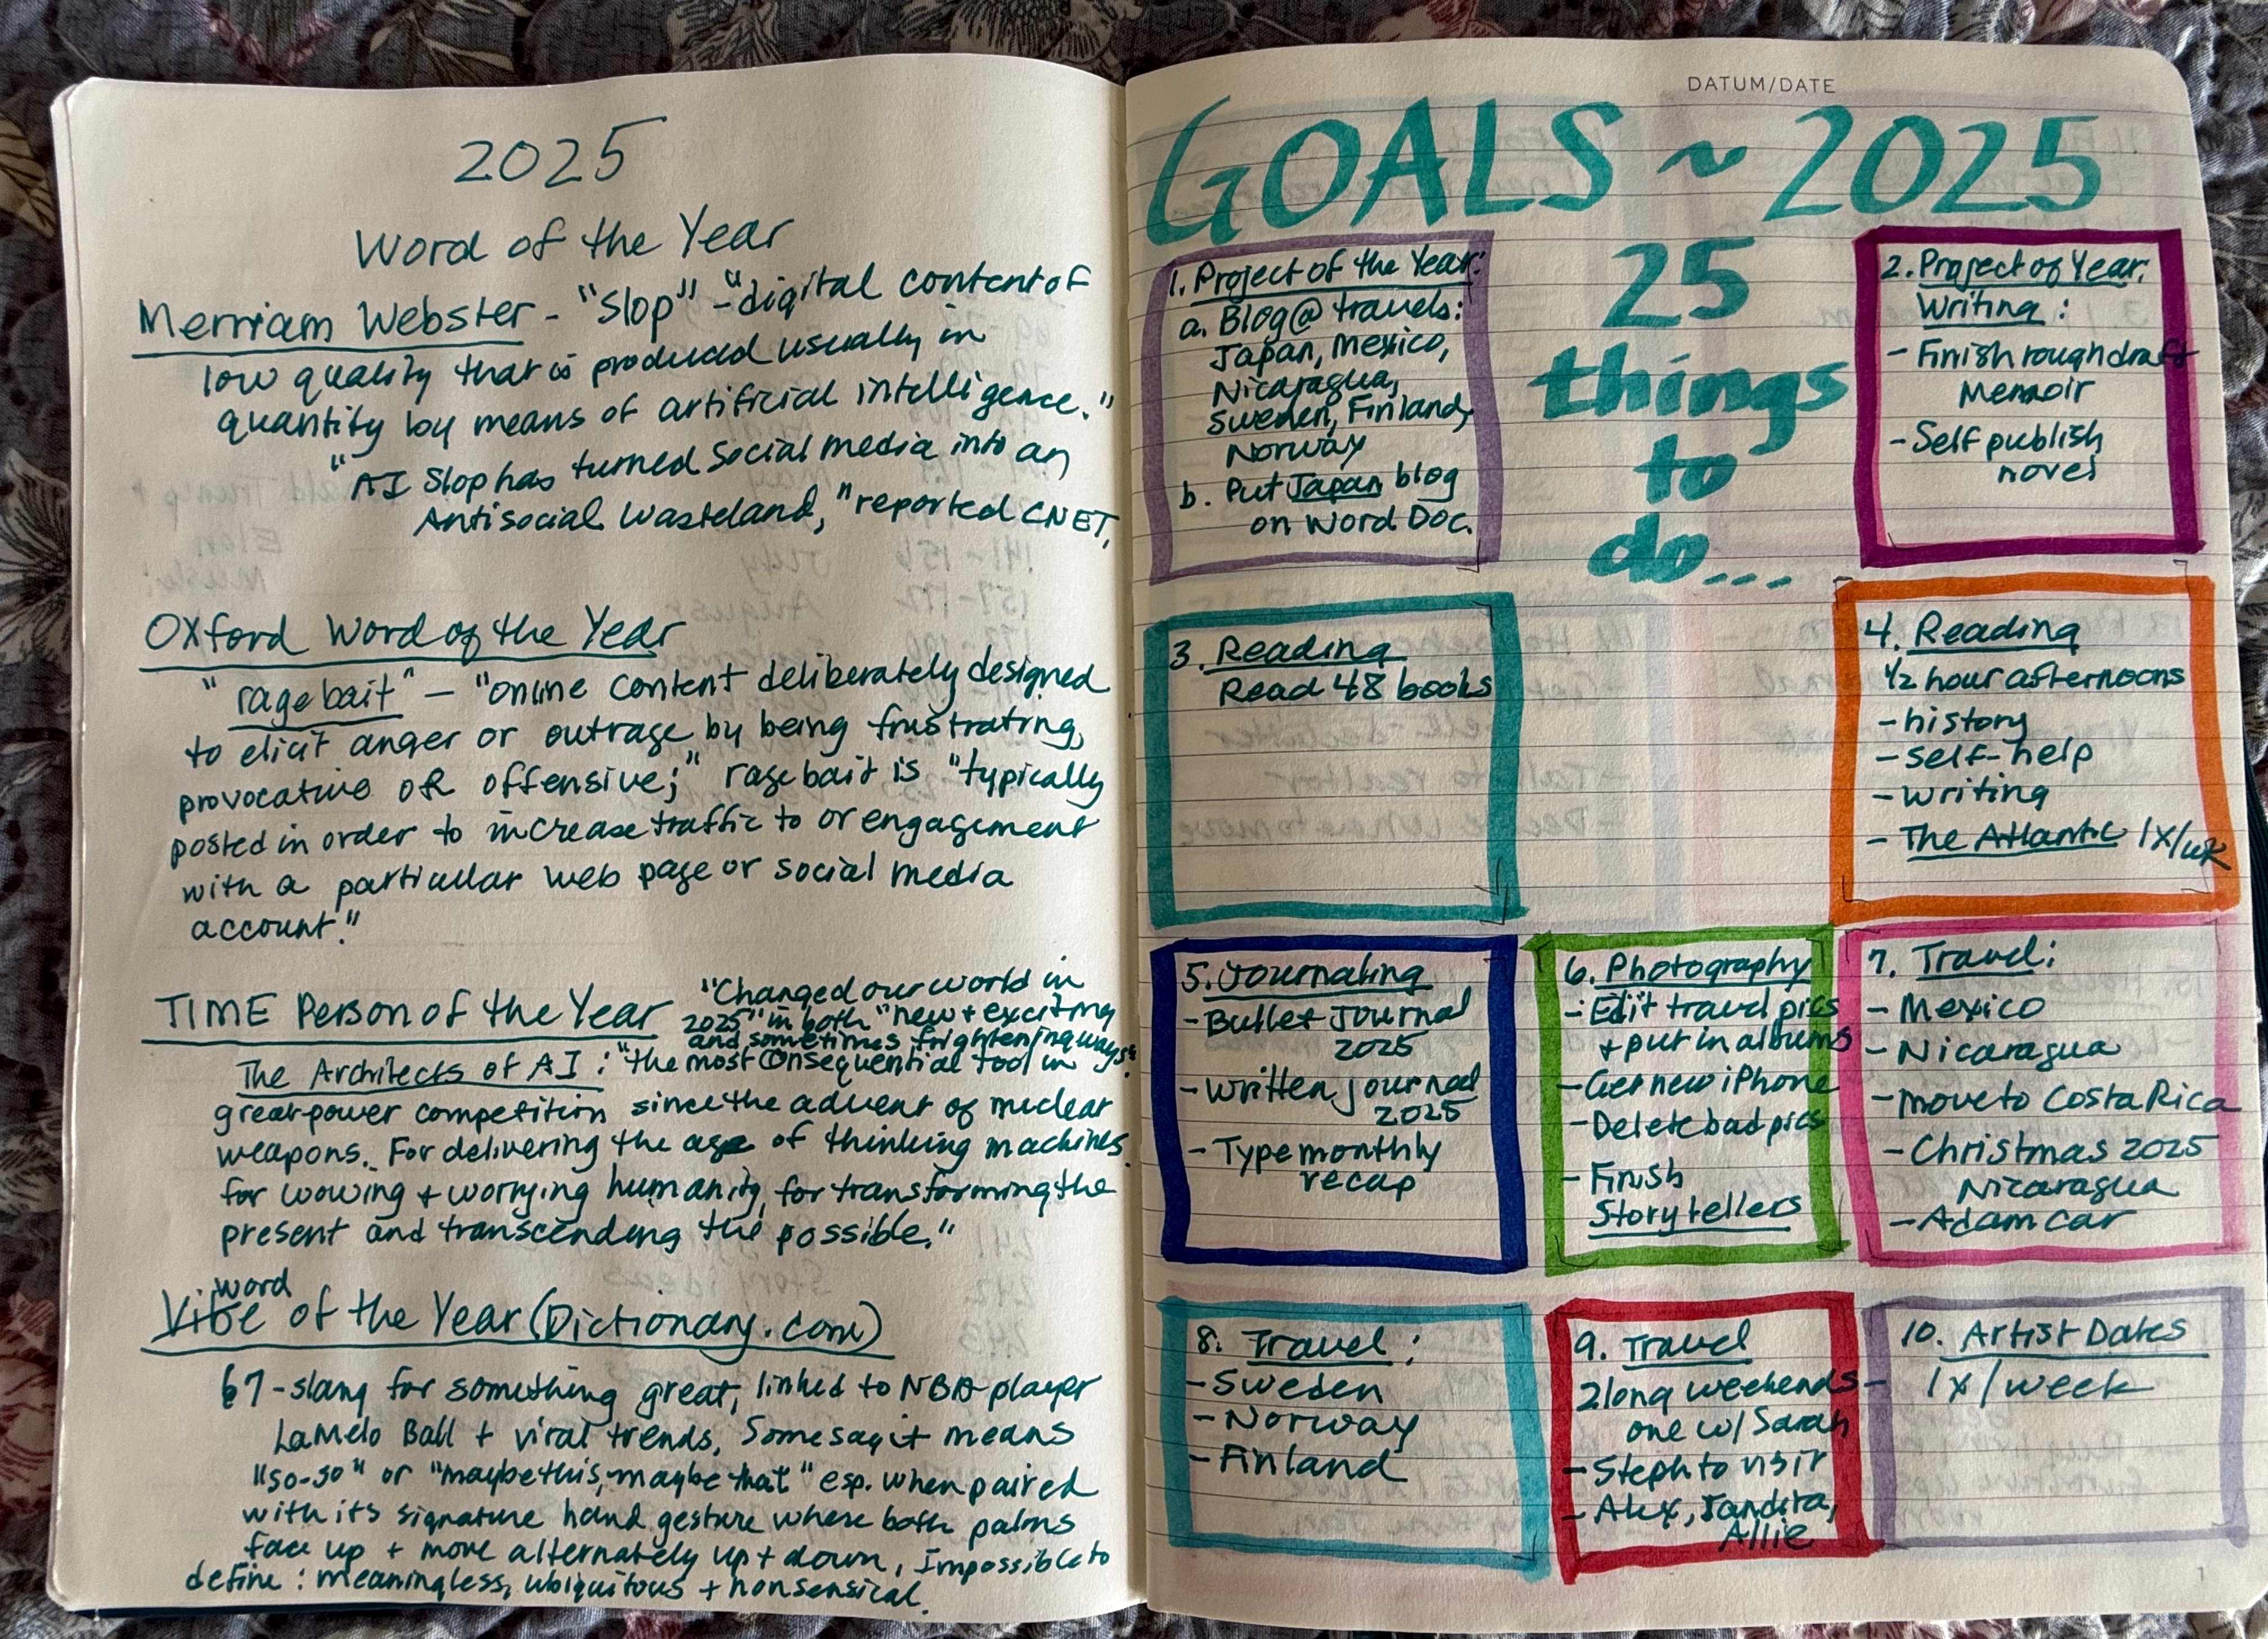 2025
Word of the Year
Merriam Webster - "Slop" - "digital content of
low quality that is produced usually in
quantity by means of artificial intelligence."
"AI Slop has turned Social media into an
Antisocial Wasteland," reported CNET.
Oxford Word of the Year
"rage bait" - "online content deliberately designed
to elicit anger or outrage by being frustrating,
provocative or offensive;" rage bait is "typically
posted in order to increase traffic to or engagement
with a particular web page or social media
account."
TIME Person of the Year
"Changed our world in
2025" in both "new + exciting
and sometimes frightening ways":
The Architects of AI: "the most consequential tool in
great-power competition since the advent of nuclear
weapons. For delivering the age of thinking machines,
for wowing + worrying humanity, for transforming the
present and transcending the possible."
word
Vibe of the Year (Dictionary.com)
67 - slang for something great, linked to NBA player
LaMelo Ball + viral trends, Some say it means
"so-so" or "maybe this, maybe that" esp. when paired
with its signature hand gesture where both palms
face up + move alternately up + down, Impossible to
define: meaningless, ubiquitous + nonsensical.
DATUM/DATE
GOALS ~ 2025
25
things
to
do...
1. Project of the Year:
a. Blog @ travels:
Japan, Mexico,
Nicaragua,
Sweden, Finland,
Norway
b. Put Japan blog
on Word Doc.
2. Project of Year.
Writing:
- Finish rough draft
Memoir
- Self publish
novel
3. Reading
Read 48 books
4. Reading
1/2 hour afternoons
- history
- self-help
- writing
- The Atlantic 1x/wk
5. Journaling
- Bullet Journal
2025
- Written journal
2025
- Type monthly
recap
6. Photography
- Edit travel pics
+ put in albums
- Get new iPhone
- Delete bad pics
- Finish
Storytellers
7. Travel:
- Mexico
- Nicaragua
- move to Costa Rica
- Christmas 2025
Nicaragua
- Adam car
8. Travel:
- Sweden
- Norway
- Finland
9. Travel
2 long weekends -
one w/ Sarah
- Steph to visit
- Alex, Jandira,
Allie
10. Artist Dates
1x/week
1